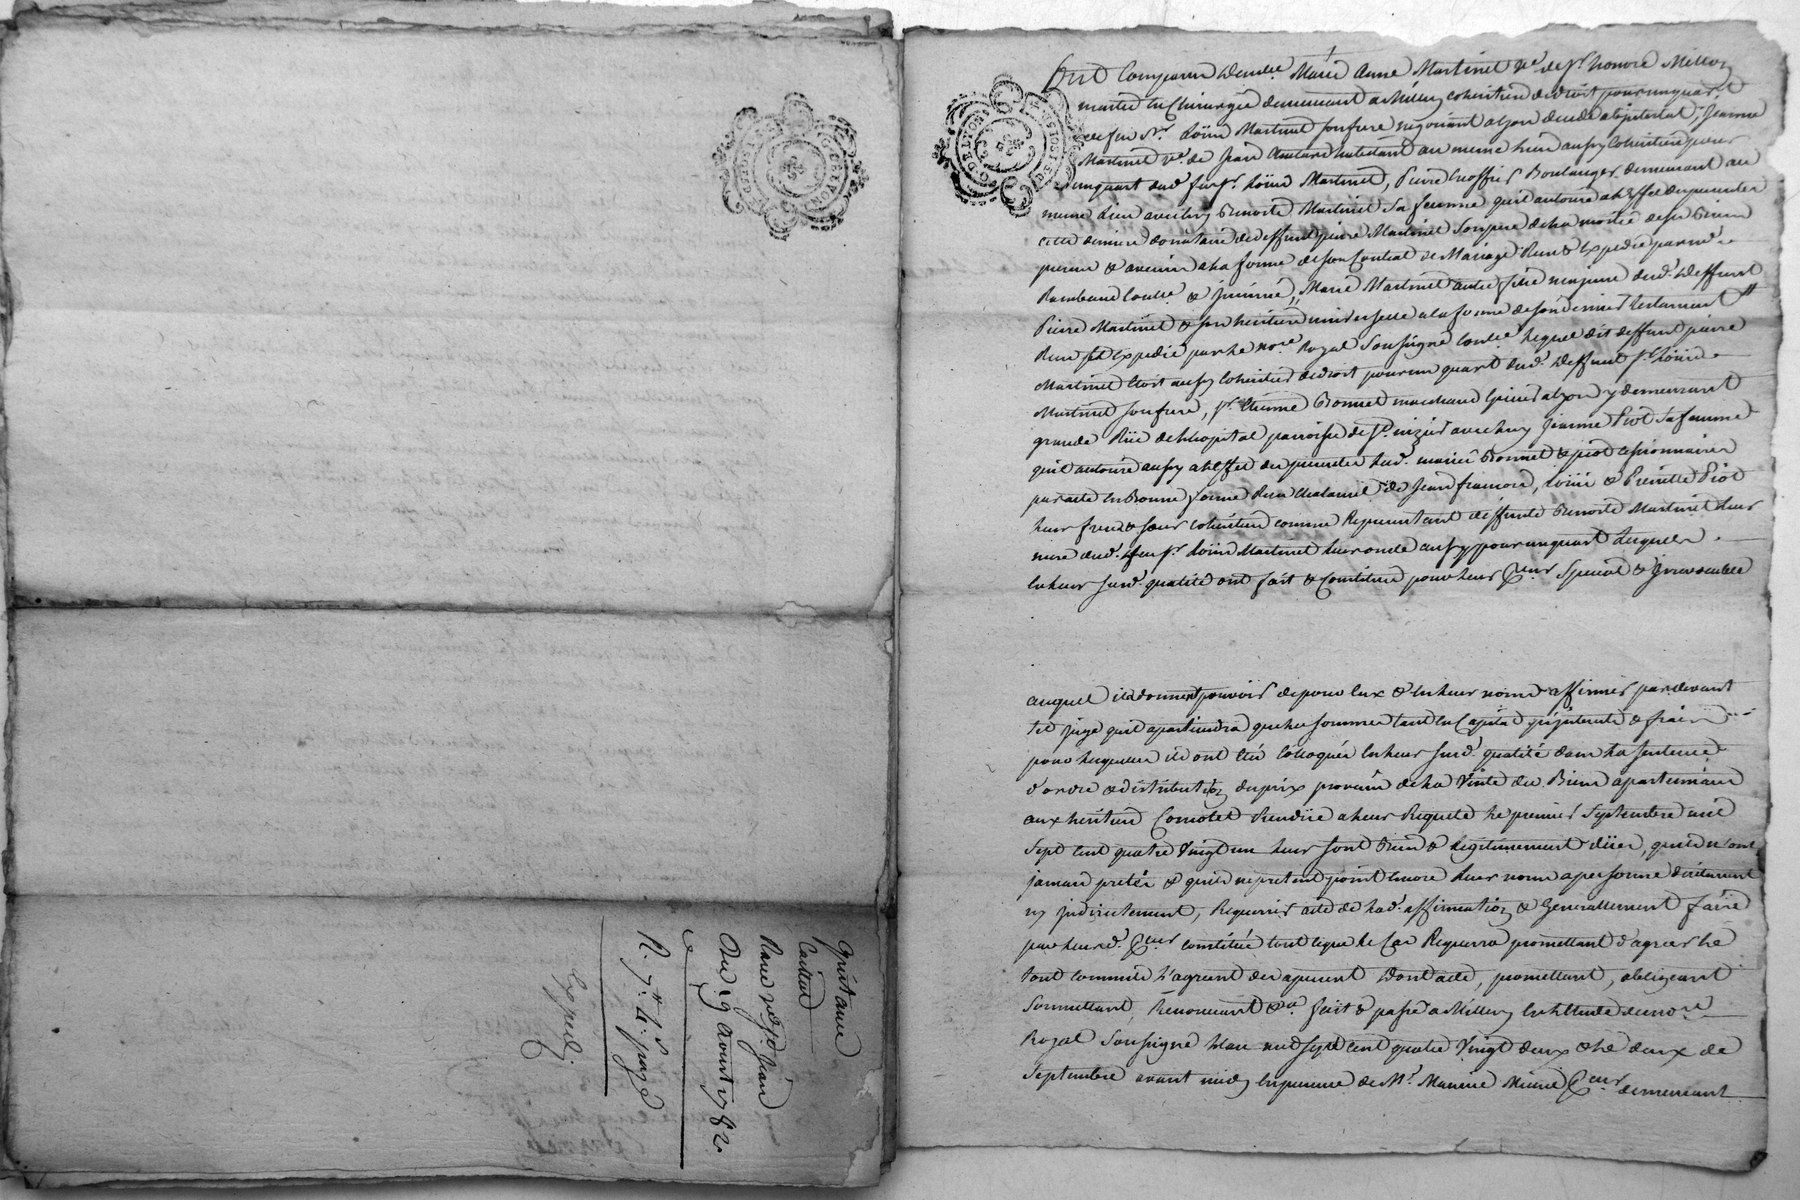 Quittance
Caillat
Rane vesve Jean
Du 19 aoust 1782
R. 7.tt 4.s payé
Expedié
G. DE LYON
Ont comparu demlle Marie Anne Martinel ve. de sr. honoré Millon
maitre en Chirurgie demeurant a Millery coheritiere de droit pour un quart
de feu Sr. Loüis Martinel son frere negotiant a Lyon decedé abintestat, Jeanne
Martinel ve. de Jean habitant au meme lieu aussy coheritiere pour
un quart dud. feu sr. Loüis Martinel, Pierre Boulanger demeurant au
meme Lieu avec luy Benoite Martinel sa femme qu'il autorise a l'effet des presentes
cette derniere donataire de deffunt pierre Martinel son pere de la moitié de ses Biens
presens & avenir a la forme de son Contrat de Mariage Reçu & Expedié par me.
Rambaud &, Marie Martinel autre fille majeure dud. deffunt
Pierre Martinel & son heritiere universelle a la forme de son dernier testament
Reçu & Expedié par le nore. Royal soussigné lequel dit deffunt pierre
Martinel etoit aussy coheritier de droit pour un quart dud. deffunt sr. Loüis
Martinel son frere, sr. Etienne Bonnet marchand Epicier a Lyon y demeurant
grande Rüe de l'hopital parroisse de St. nizier avec luy Jeanne Piot sa femme
qu'il autorise aussy a l'effet des presentes lesd. mariés Bonnet & piot cessionnaires
par acte en Bonne forme Reçu de Jean francois, Loüis & Pierrette Piot
leurs freres & soeur coheritiers comme Representant deffunte Benoite Martinel leur
mere dud. feu sr. Loüis Martinel leur oncle aussy pour un quart Lesquels
en leurs susd. qualités ont fait & Constitué pour leur Preur. Special & Irrevocable
auquel ils donnent pouvoir de pour Eux & en leurs noms affirmer pardevant
tel juge qu'il apartiendra que les sommes tant en Capital qu'interets & frais
pour lesquelles ils ont été colloqués en leurs susd. qualités dans la sentence
d'ordre & distribution du prix provenu de la Vente des Biens apartenans
aux heritiers Comotet Rendüe a leur Requete le premier Septembre mil
Sept Cent quatre Vingt un leur sont Bien & legitimement düe, qu'ils n'ont
jamais preté & qu'ils ne pretent point encore leurs noms a personne directement
ny indirectement, Requerir acte de lad. affirmation & Generallement faire
par leurd. Preur. constitué tout ce que le Cas Requerra promettant d'agréer le
tout comme l'agreent des apresent Dont acte, promettant, obligeant
Soumettant, Renoncant &a. fait & passé a Millery en l'Etude du nore
Royal Soussigné l'an mil sept cent quatre Vingt deux & le deux de
Septembre avant midy en presence de Mr. Preur. demeurant